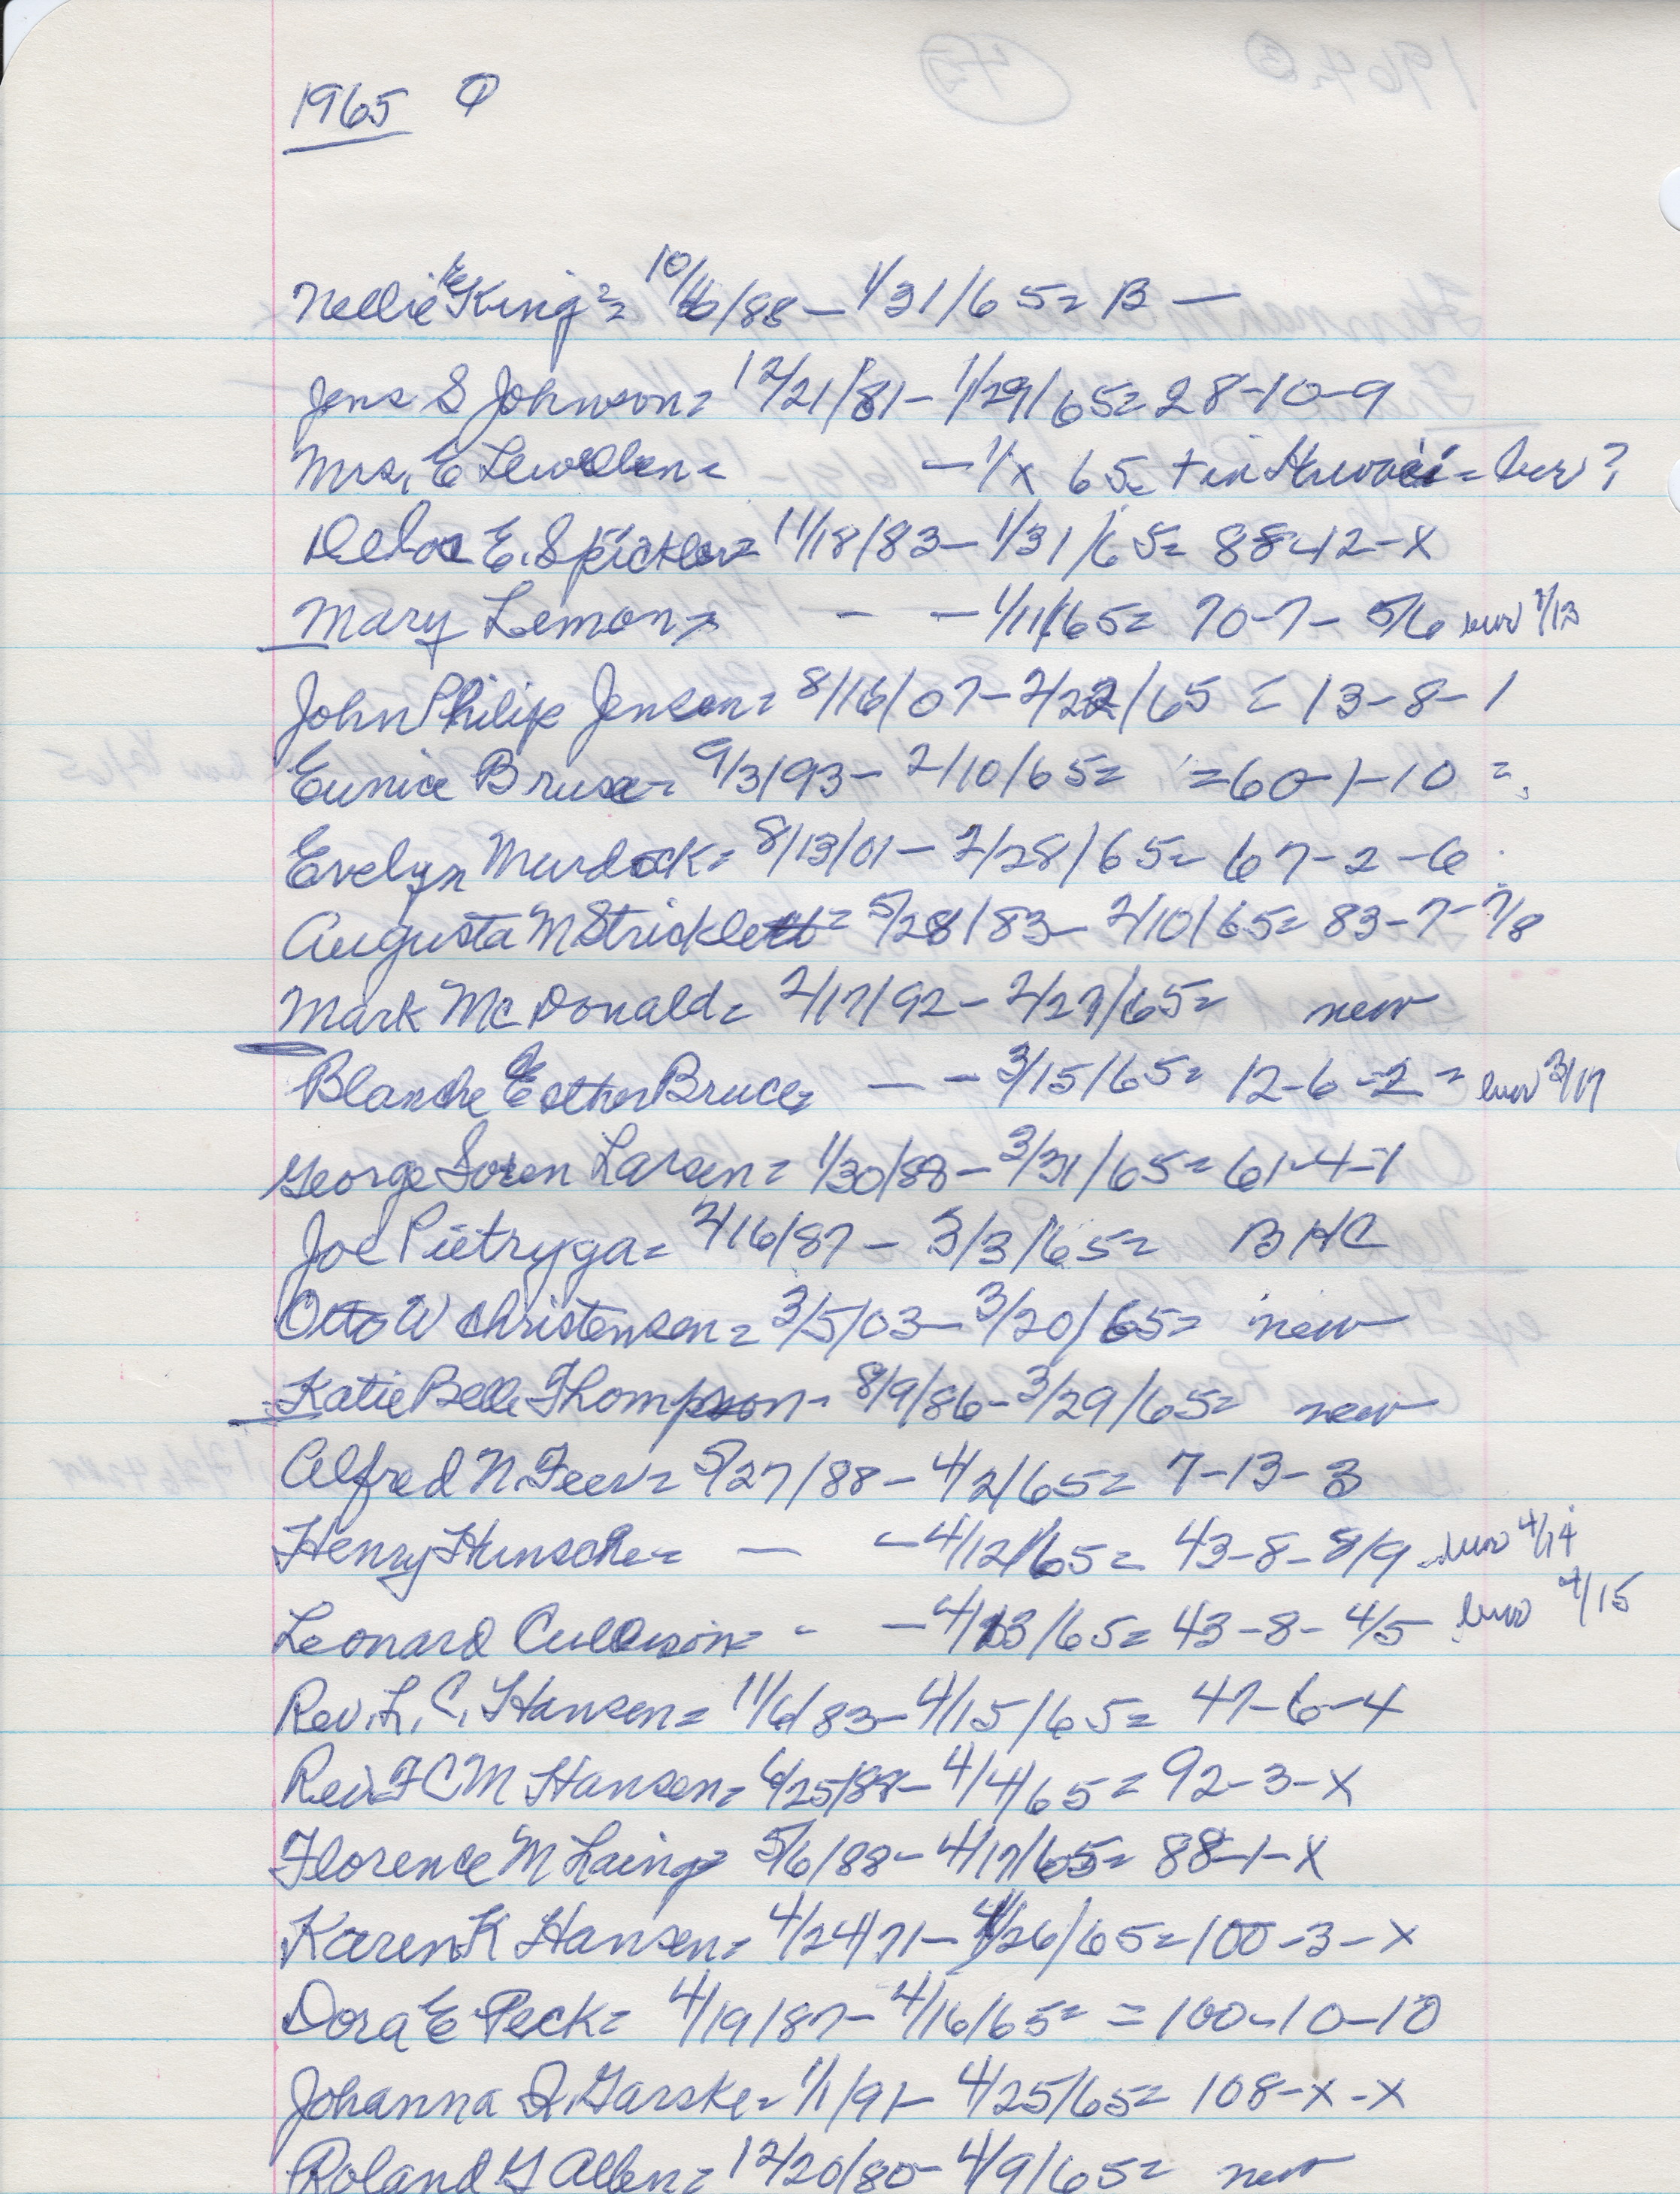 1965 ①
Nellie E King = 10/16/88 – 1/31/65 = B —
Jens S Johnson = 12/21/81 – 1/29/65 = 28-10-9
Mrs. E Lewellen = – 1/x 65 = + in Hawaii = bur?
E. Spickler = 11/18/83 – 1/31/65 = 88-12-X
Mary Lemon = - – 1/11/65 = 70-7-5/6 bur 1/13
John Philip Jensen = 8/16/07 – 2/22/65 = 13-8-1
Eunice Bruse = 9/3/93 – 2/10/65 = = 60-1-10 =
Evelyn Murdock = 8/13/01 – 2/28/65 = 67-2-6
Augusta M Stricklett = 5/28/83 – 2/10/65 = 83-7-7/8
Mark McDonald = 2/17/92 – 2/27/65 = new
Blanche Esther Bruce = — – 3/15/65 = 12-6-2 = bur 3/17
George Soren Larsen = 1/30/88 – 3/31/65 = 61-4-1
Joe Pietryga = 2/16/87 – 3/3/65 = B HC
Otto W Christensen = 3/5/03 – 3/20/65 = new
Katie Belle Thompson - 8/9/86 – 3/29/65 = new
Alfred N. = 5/27/88 – 4/2/65 = 7-13-3
Henry Hunsche = — – 4/12/65 = 43-8-8/9 bur 4/14
Leonard Cullison = - – 4/13/65 = 43-8-4/5 bur 4/15
Rev. L. C. Hansen = 11/6/83 – 4/15/65 = 47-6-4
Rev. F C M Hansen = 6/25/88 – 4/4/65 = 92-3-X
Florence M Laing = 5/6/88 – 4/17/65 = 88-1-X
Karen K Hansen = 4/24/71 – 4/26/65 = 100-3-X
Dora E Peck = 4/19/87 – 4/16/65 = = 100-10-10
Johanna Garske = 1/1/91 – 4/25/65 = 108-X-X
Roland G Allen = 12/20/80 – 4/9/65 = new